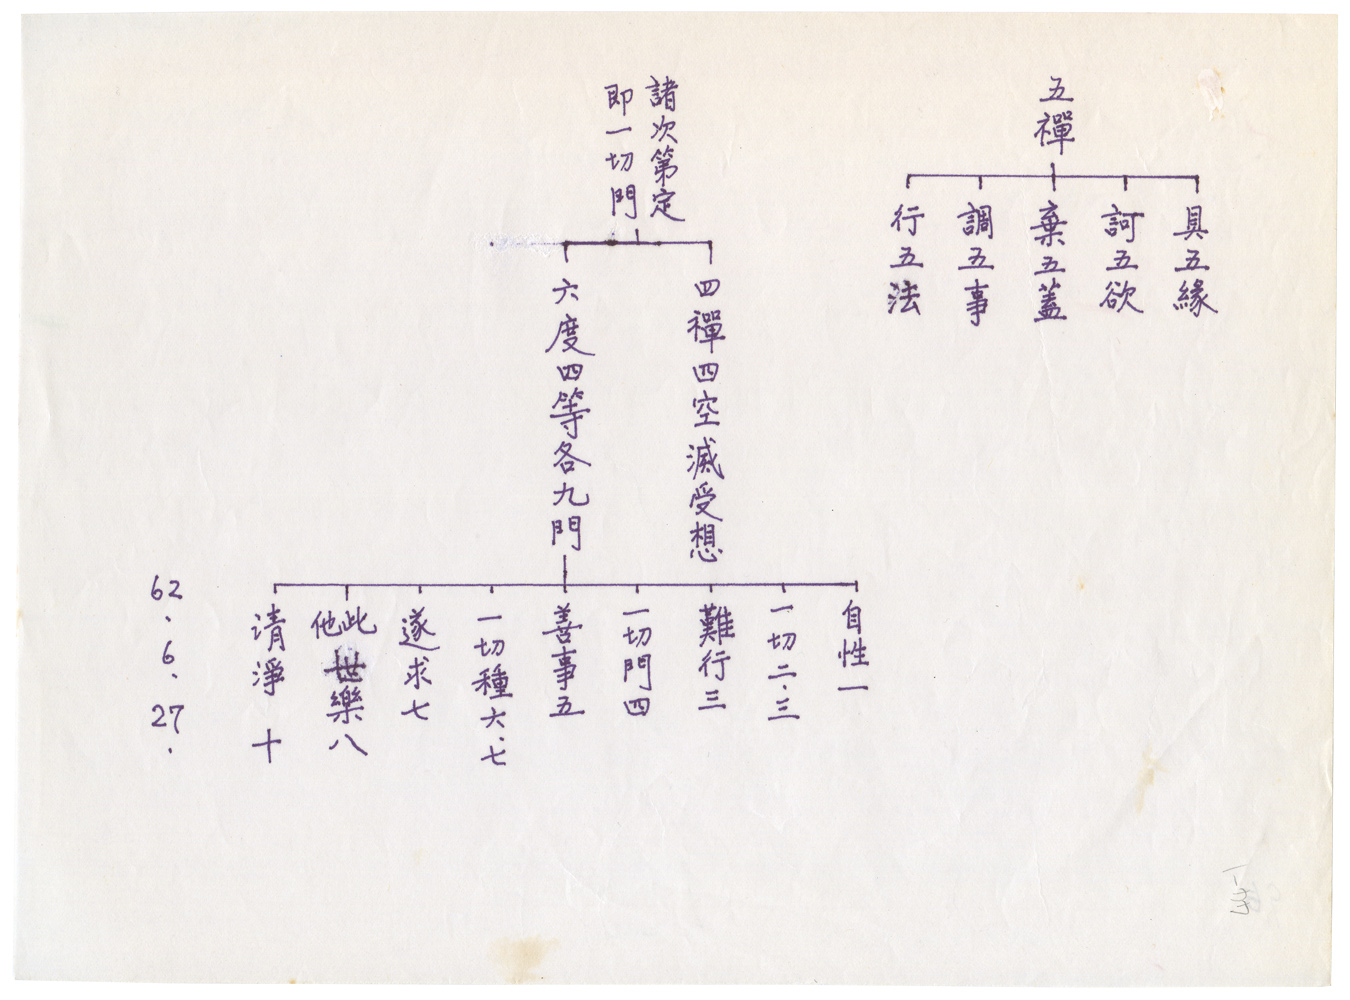 五禪
具五緣
訶五欲
棄五蓋
調五事
行五法
諸次第定
即一切門
四禪四空滅受想
六度四等各九門
自性一
一切二、三
難行三
一切門四
善事五
一切種六、七
遂求七
此他世樂八
清淨 十
62.6.27.